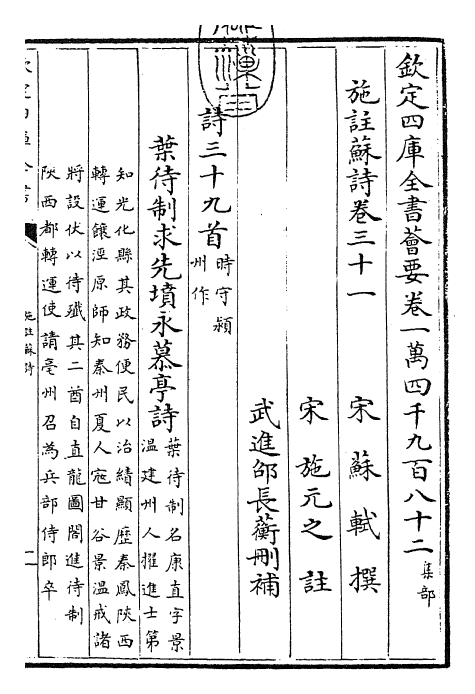 欽定四庫全書薈要卷一萬四千九百八十二 集部
施註蘇詩卷三十一
宋 蘇軾 撰
宋 施元之 註
武進邵長蘅刪補
詩三十九首 時守潁
州作
葉待制求先墳永慕亭詩 葉待制名康直字景
温建州人擢進士第
知光化縣其政務便民以治績顯歷秦鳳陝西
轉運饟涇原師知秦州夏人寇甘谷景温戒諸
將設伏以待殱其二酋自直龍圖閣進待制
陝西都轉運使請亳州召為兵部侍郎卒
施註蘇詩